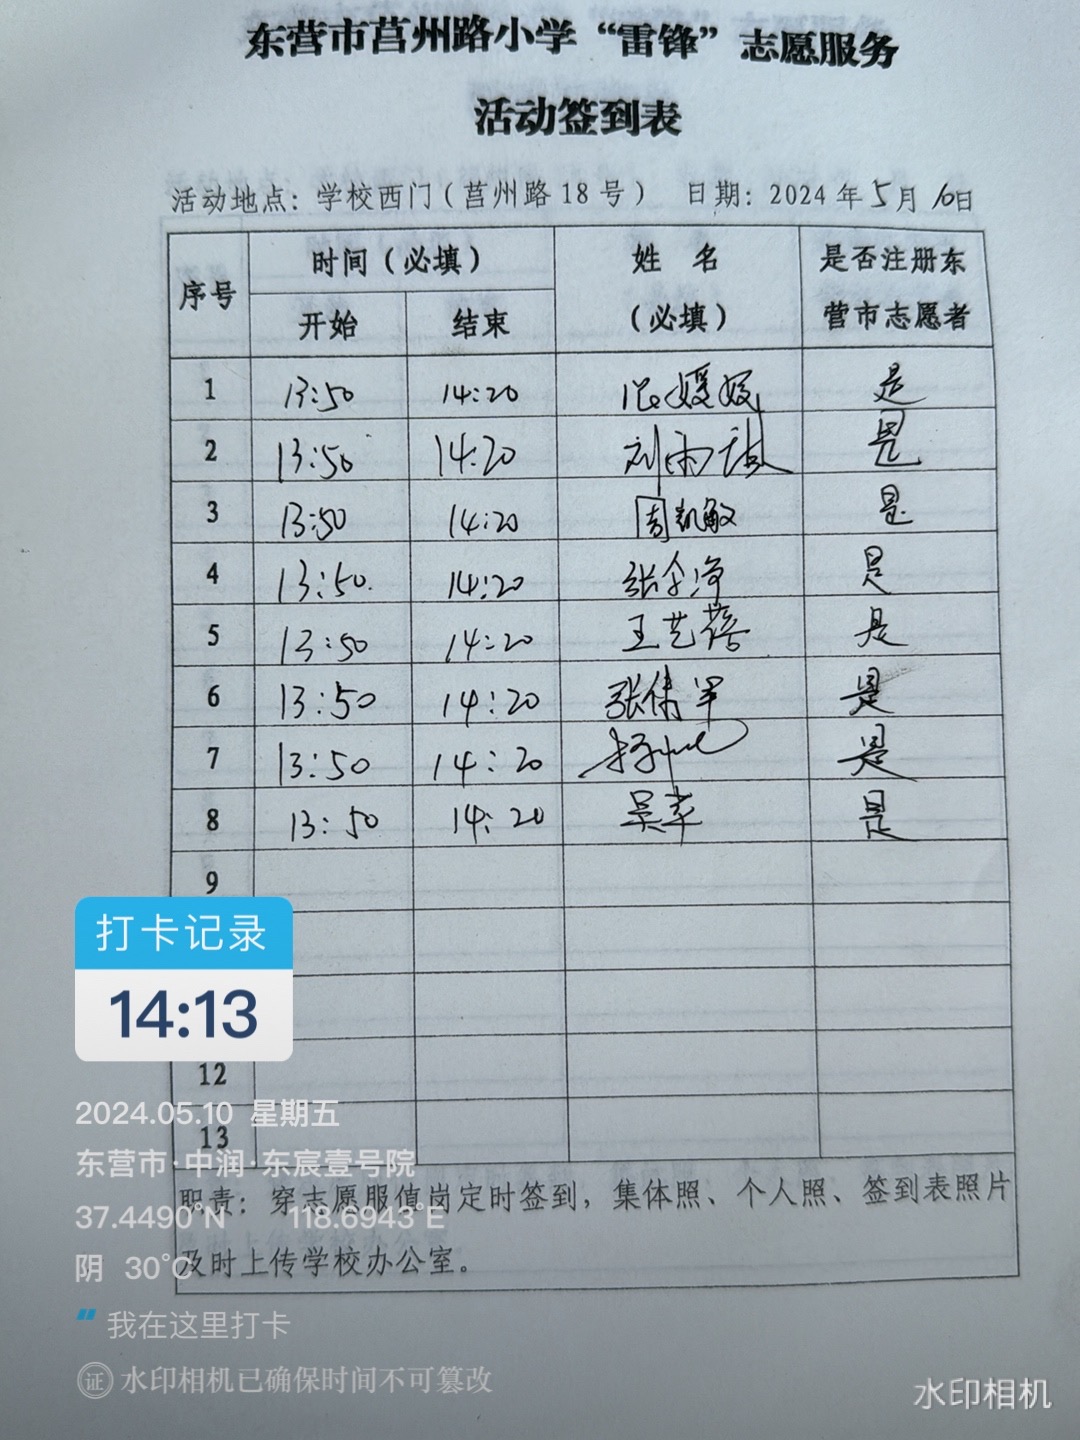 东营市莒州路小学“雷锋”志愿服务
活动签到表
活动地点：学校西门（莒州路18号） 日期：2024年5月10日
序号 时间（必填） 姓 名 是否注册东
开始 结束 （必填） 营市志愿者
1 13:50 14:20 媛媛 是
2 13:50 14:20 刘雨 是
3 13:50 14:20 周凯敏 是
4 13:50. 14:20 张 是
5 13:50 14:20 王艺蓓 是
6 13:50 14:20 张倩 是
7 13:50 14:20 是
8 13:50 14:20 吴 是
9
12
13
职责：穿志愿服值岗定时签到，集体照、个人照、签到表照片
及时上传学校办公室。
打卡记录
14:13
2024.05.10 星期五
东营市·中润·东宸壹号院
37.4490°N 118.6943°E
阴 30°C
我在这里打卡
证 水印相机已确保时间不可篡改
水印相机